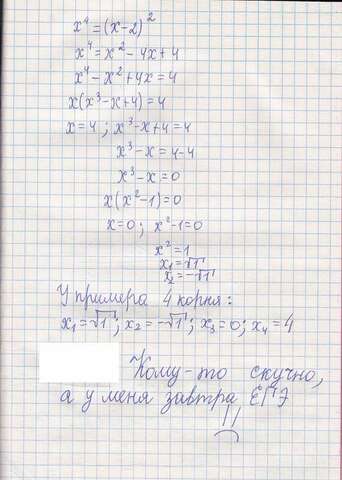 x⁴=(x-2)²
x⁴=x²-4x+4
x⁴-x²+4x=4
x(x³-x+4)=4
x=4; x³-x+4=4
x³-x=4-4
x³-x=0
x(x²-1)=0
x=0; x²-1=0
x²=1
x₁=√1
x₂=-√1
У примера 4 корня:
x₁=√1; x₂=-√1; x₃=0; x₄=4
Кому-то скучно,
а у меня завтра ЕГЭ